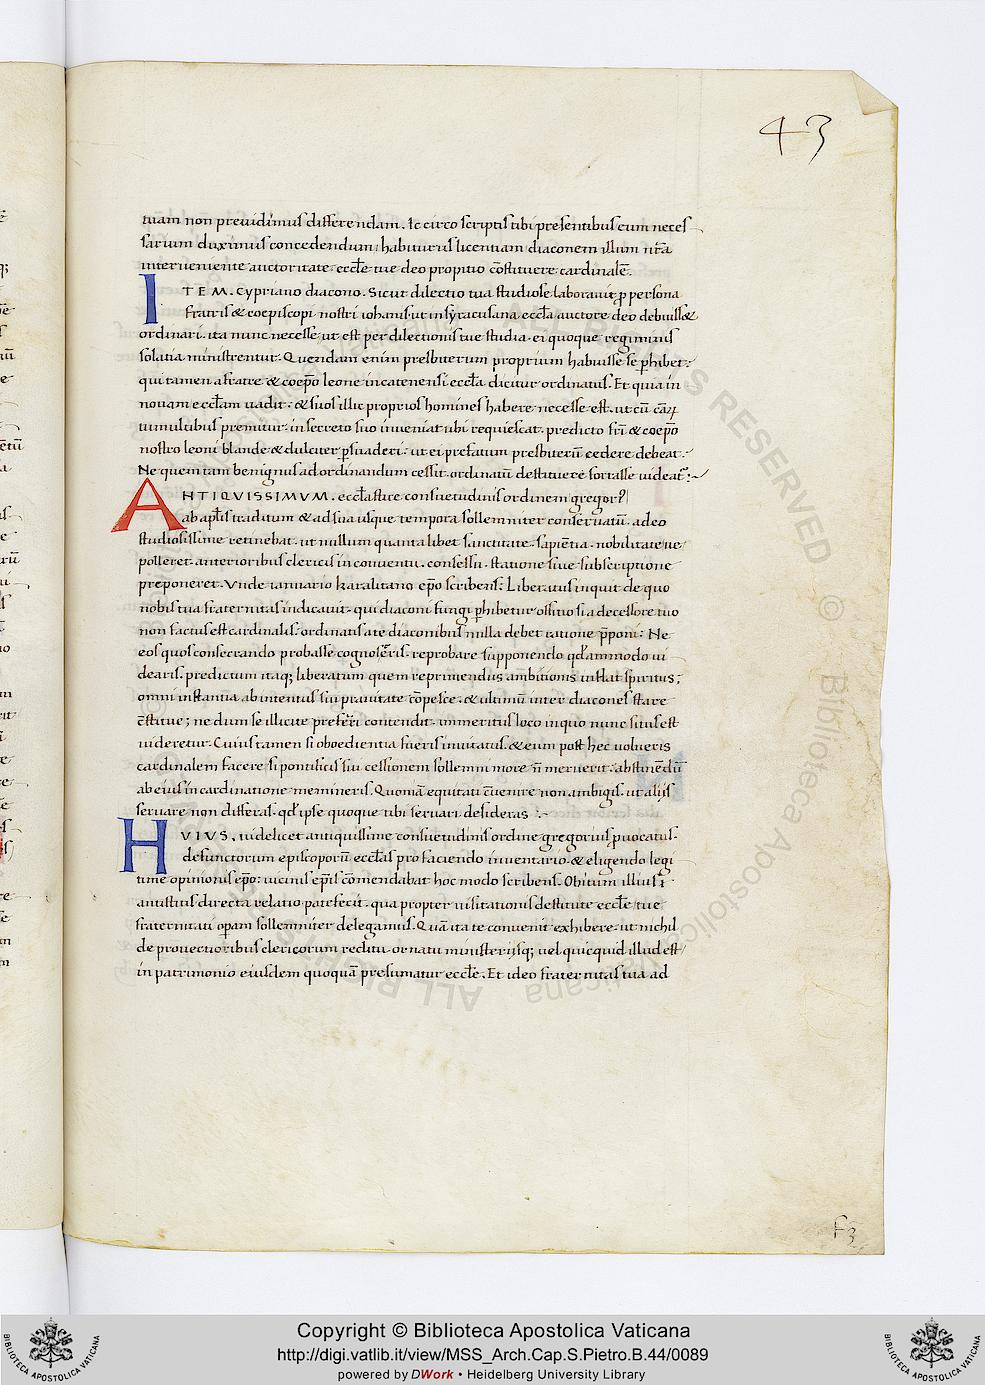 43
tuam non preuidimus differendam. Ic circo scriptis tibi presentibus cum neces
sarium duximus concedendum habiturus licentiam diaconem illum nr̄a
interueniente auctoritate eccl̄e tue deo propitio cōstituere cardinalē.
ITEM. Cypriano diacono. Sicut dilectio tua studiose laborauit ꝓ persona
fratris & coepiscopi nostri iohanis ut in syracusana eccl̄a auctore deo debuiss&
ordinari. ita nunc necesse ut est per dilectionis tue studia. ei quoque regiminis
solatia ministrentur. Quendam enim presbiterum proprium habuisse se ꝑhibet:
qui tamen a fratre & coepō leone in catenensi eccl̄a dicitur ordinatus. Et quia in
nouam eccl̄am uadit: & suos illic proprios homines habere necesse est. ut cū cāꝝ
tumultibus premitur: in secreto suo inueniat ubi requiescat. predicto fr̄i & coepō
nostro leoni blande & dulciter ꝑsuaderi: ut ei prefatum presbiterū cedere debeat:
Ne quem tam benignus ad ordinandum cessit. ordinatū destituere fortasse uideat᷑:
ANTIQUISSIMVM. eccl̄astice consuetudinis ordinem gregori᷒
ab apl̄is traditum & ad sua usque tempora sollemniter conseruatū. adeo
studiosissime retinebat. ut nullum quanta libet sanctitate. sapiētia. nobilitate ue
polleret. anterioribus clericis in conuentu. consessu. statione siue subscriptione
preponeret. Vnde ianuario karalitano epō scribens: Liberatus inquit de quo
nobis tua fraternitas indicauit. qui diaconi fungi ꝑhibetur offitio si a decessore tuo
non factus est cardinalis: ordinatis a te diaconibus nulla debet ratione p̄poni: Ne
eos quos consecrando probasse cognosceris. reprobare supponendo qd̄ammodo ui
dearis. predictum itaq; liberatum quem reprimendus ambitionis inflat spiritus;
omni instantia ab intentus sui prauitate cōpesce. & ultimū inter diacones stare
c̄stitue; ne dum se illicite preferri contendit. immeritus loco in quo nunc situs est
uideretur. Cuius tamen si oboedientia fueris inuitatus. & eum post hec uolueris
cardinalem facere si pontificis sui cessionem sollemni more n̄ meruerit: abstinēdū
ab eius incardinatione memineris. Quoniā equitati c̄uenire non ambigis. ut alijs
seruare non differas. qd̄ ipse quoque tibi seruari desideras :-
HVIVS. uidelicet antiquissime consuetudinis ordine gregorius ꝓuocatus.
defunctorum episcoporū eccl̄as pro faciendo inuentario. & eligendo legi
time opinionis epō: uicinis epīs cōmendabat hoc modo scribens. Obitum illius
antistitis directa relatio patefecit. qua propter uisitationis destitute eccl̄e tue
fraternitati oꝑam sollemniter delegamus. Quā ita te conuenit exhibere. ut nichil
de prouectioribus clericorum reditu. ornatu ministerijsq; uel quicquid illud est
in patrimonio eiusdem quoquā presumatur eccl̄e. Et ideo fraternitas tua ad
f3
Copyright © Biblioteca Apostolica Vaticana
http://digi.vatlib.it/view/MSS_Arch.Cap.S.Pietro.B.44/0089
powered by DWork • Heidelberg University Library